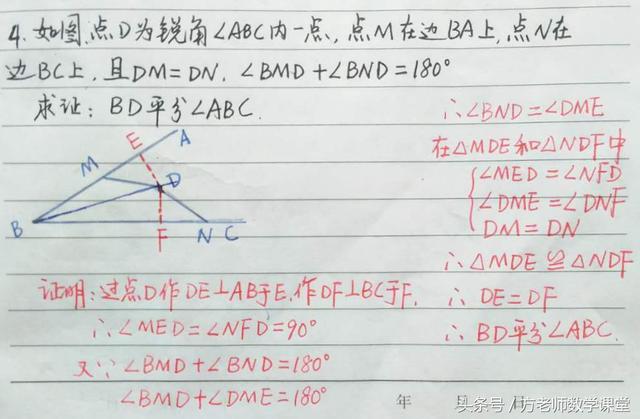 4. 如图,点D为锐角∠ABC内一点,点M在边BA上,点N在
边BC上,且DM=DN,∠BMD+∠BND=180°
求证:BD平分∠ABC.
E
A
M
D
B
F
N
C
证明:过点D作DE⊥AB于E,作DF⊥BC于F.
∴∠MED=∠NFD=90°
又∵∠BMD+∠BND=180°
∠BMD+∠DME=180°
∴∠BND=∠DME
在△MDE和△NDF中
∠MED=∠NFD
∠DME=∠DNF
DM=DN
∴△MDE≌△NDF
∴DE=DF
∴BD平分∠ABC.
年
头条号/方老师数学课堂